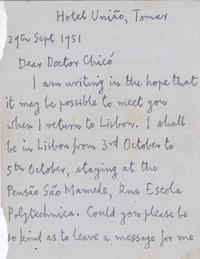 Hotel União, Tomar
29th Sept 1951
Dear Doctor Chicó
I am writing in the hope that
it may be possible to meet you
when I return to Lisbon. I shall
be in Lisbon from 3rd October to
5th October, staying at the
Pensão São Mamede, Rua Escola
Polytechnica. Could you please be
so kind as to leave a message for me